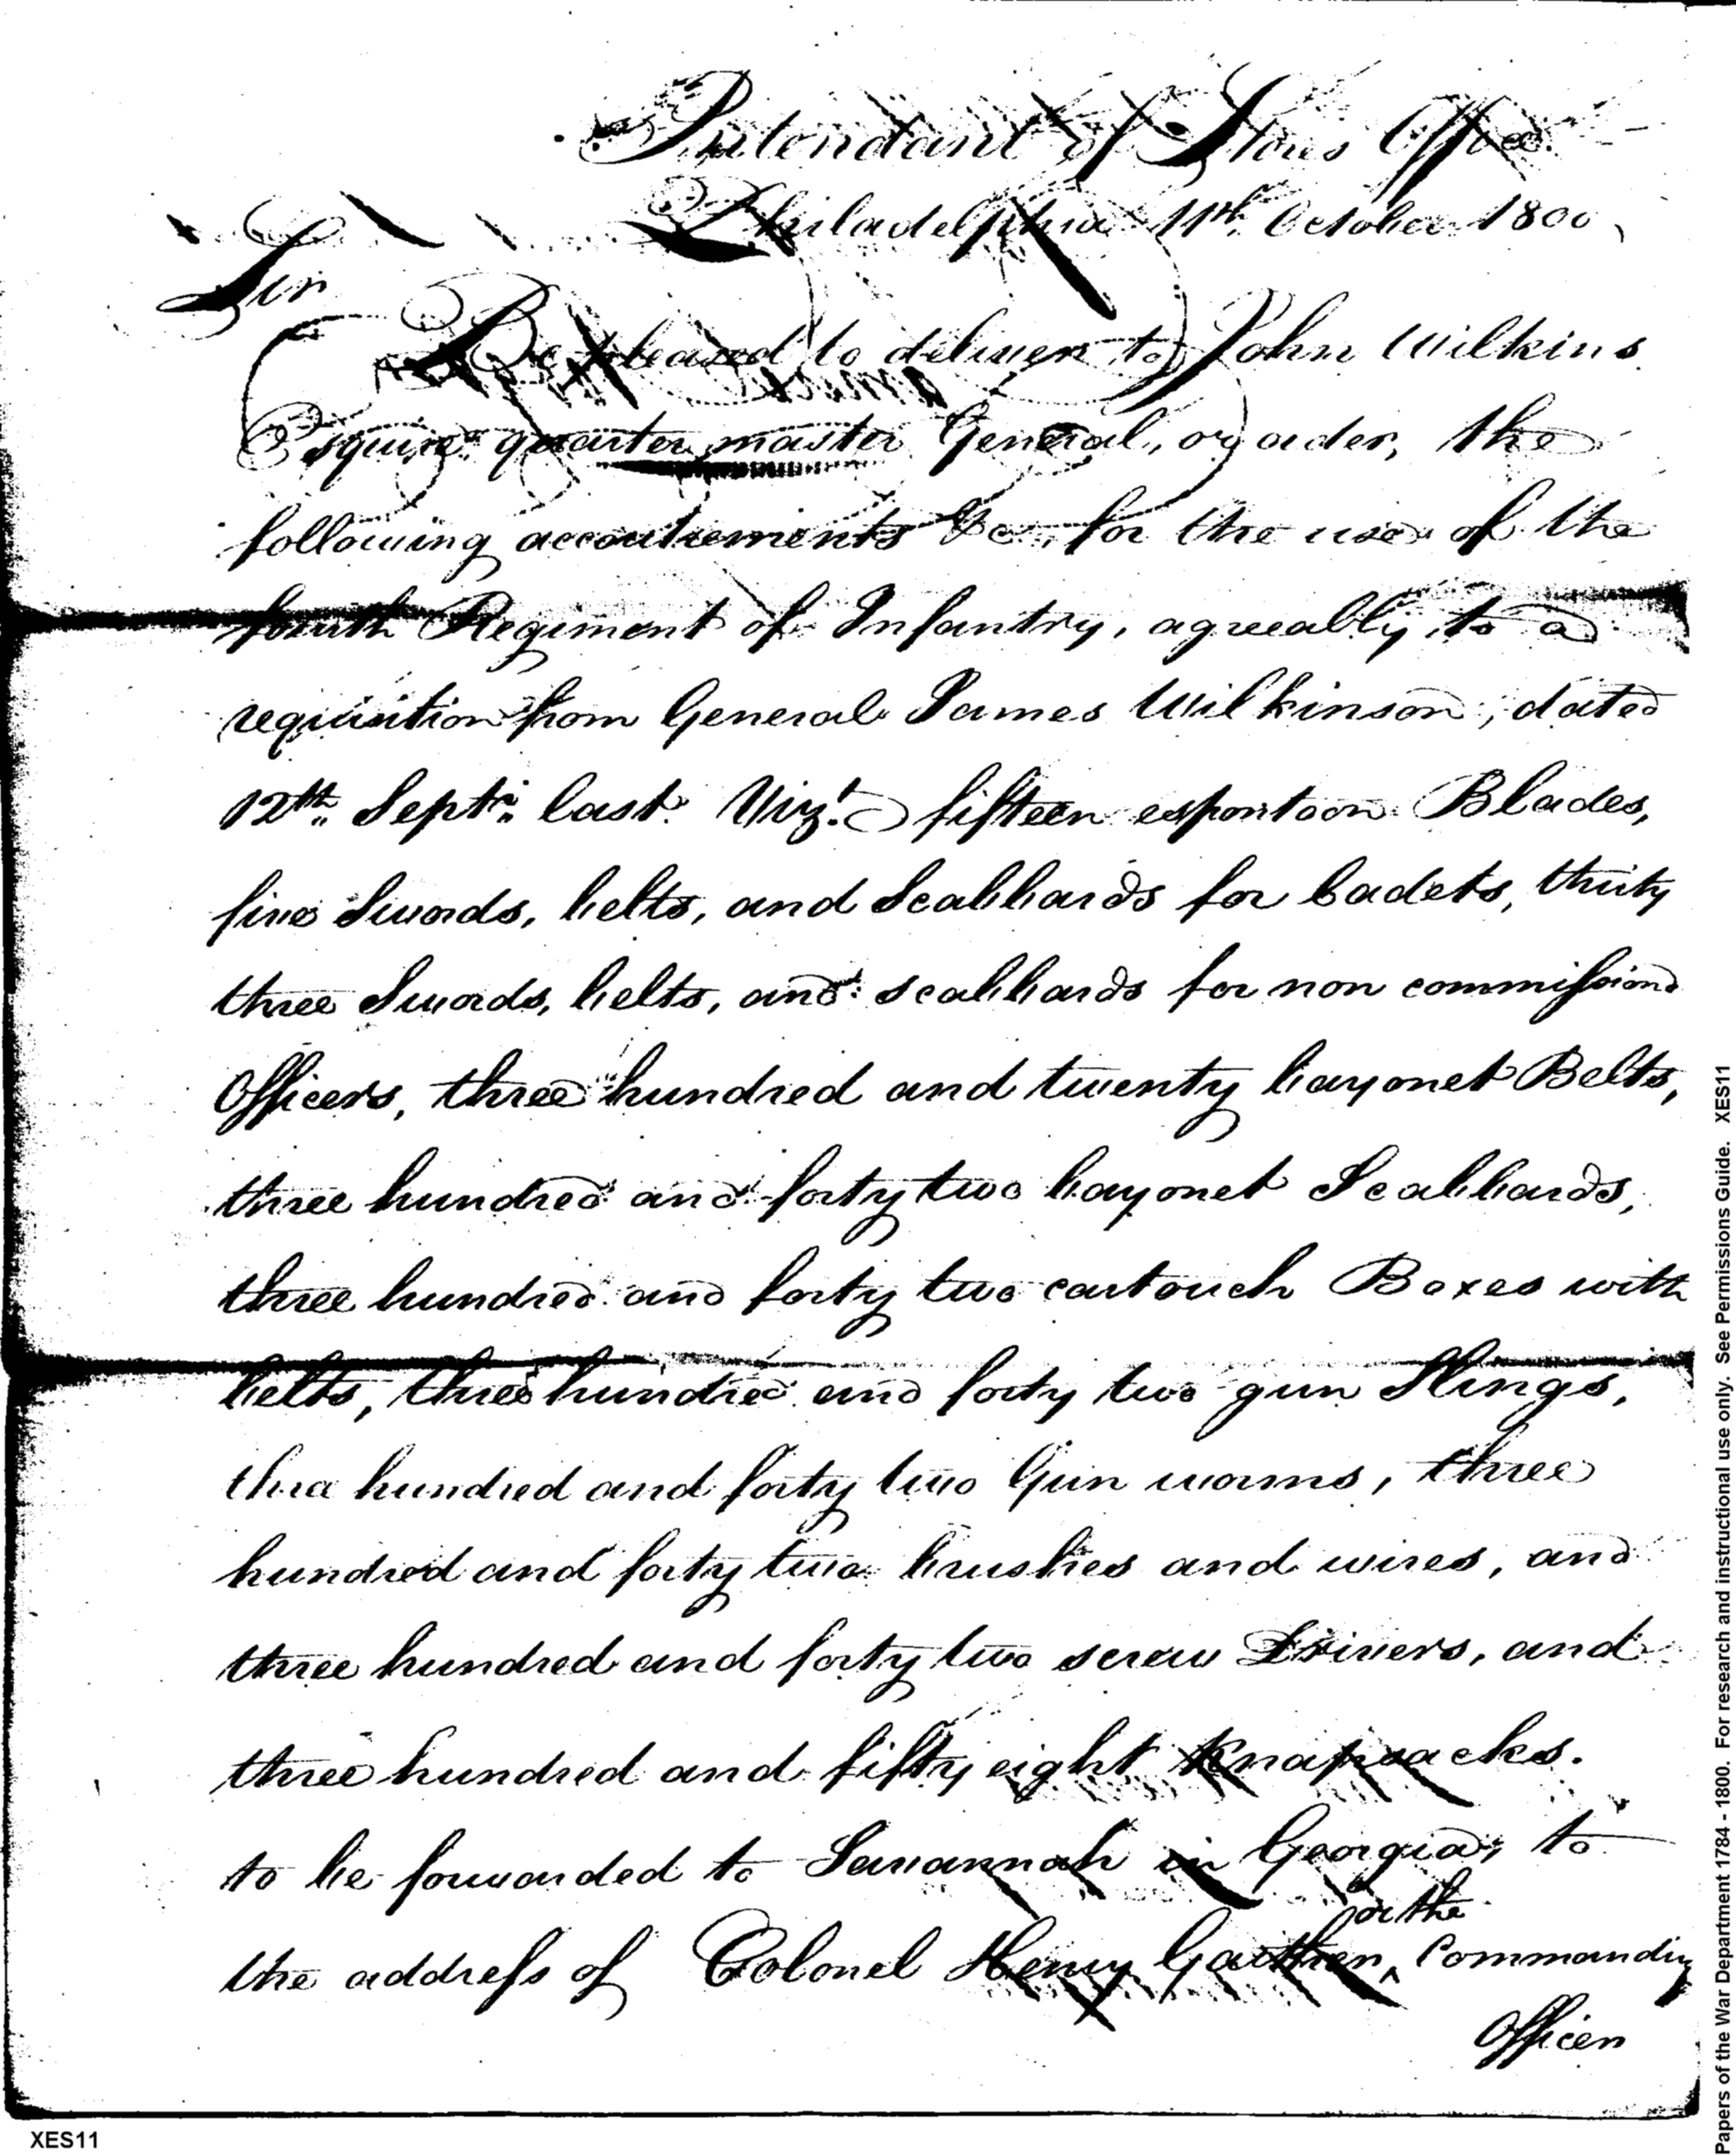 Intendant of Stores Office.
Philadelphia 11th. October 1800,
Sir
Be pleased to deliver to John Wilkins
Esquire quarter master General, or order, the
following accoutrements &c. for the use of the
fourth Regiment of Infantry, agreeably to a
requisition from General James Wilkinson, dated
12th. Septr. last. Vizt. fifteen espontoon Blades,
five Swords, belts, and Scabbards for Cadets, thirty
three Swords, belts, and scabbards for non commissiond
Officers, three hundred and twenty bayonet Belts,
three hundred and forty two bayonet Scabbards,
three hundred and forty two cartouch Boxes with
belts, three hundred and forty two gun Slings,
three hundred and forty two Gun worms, three
hundred and forty two brushes and wires, and
three hundred and forty two screw Drivers, and
three hundred and fifty eight Knapsacks.
to be forwarded to Savannah in Georgia, to
or the
the address of Colonel Henry Gaither, ^ Commanding
Officer
Papers of the War Department 1784 - 1800. For research and instructional use only. See Permissions Guide. XES11
XES11